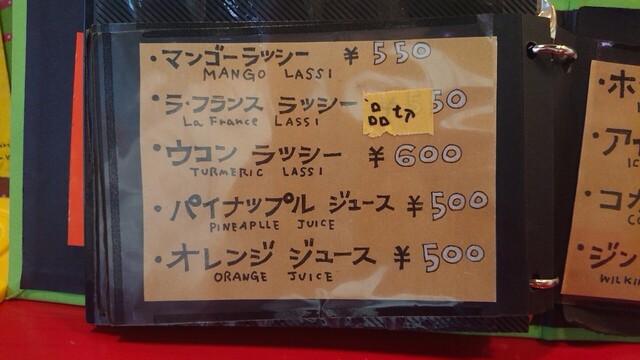 ・マンゴーラッシー ¥550
MANGO LASSI
・ラ・フランス ラッシー 品切 50
La France LASSI
・ウコン ラッシー ¥600
TURMERIC LASSI
・パイナップル ジュース ¥500
PINEAPLLE JUICE
・オレンジ ジュース ¥500
ORANGE JUICE
・ホ
・アイ
IC
・コカ
CO
・ジン
WILKIN